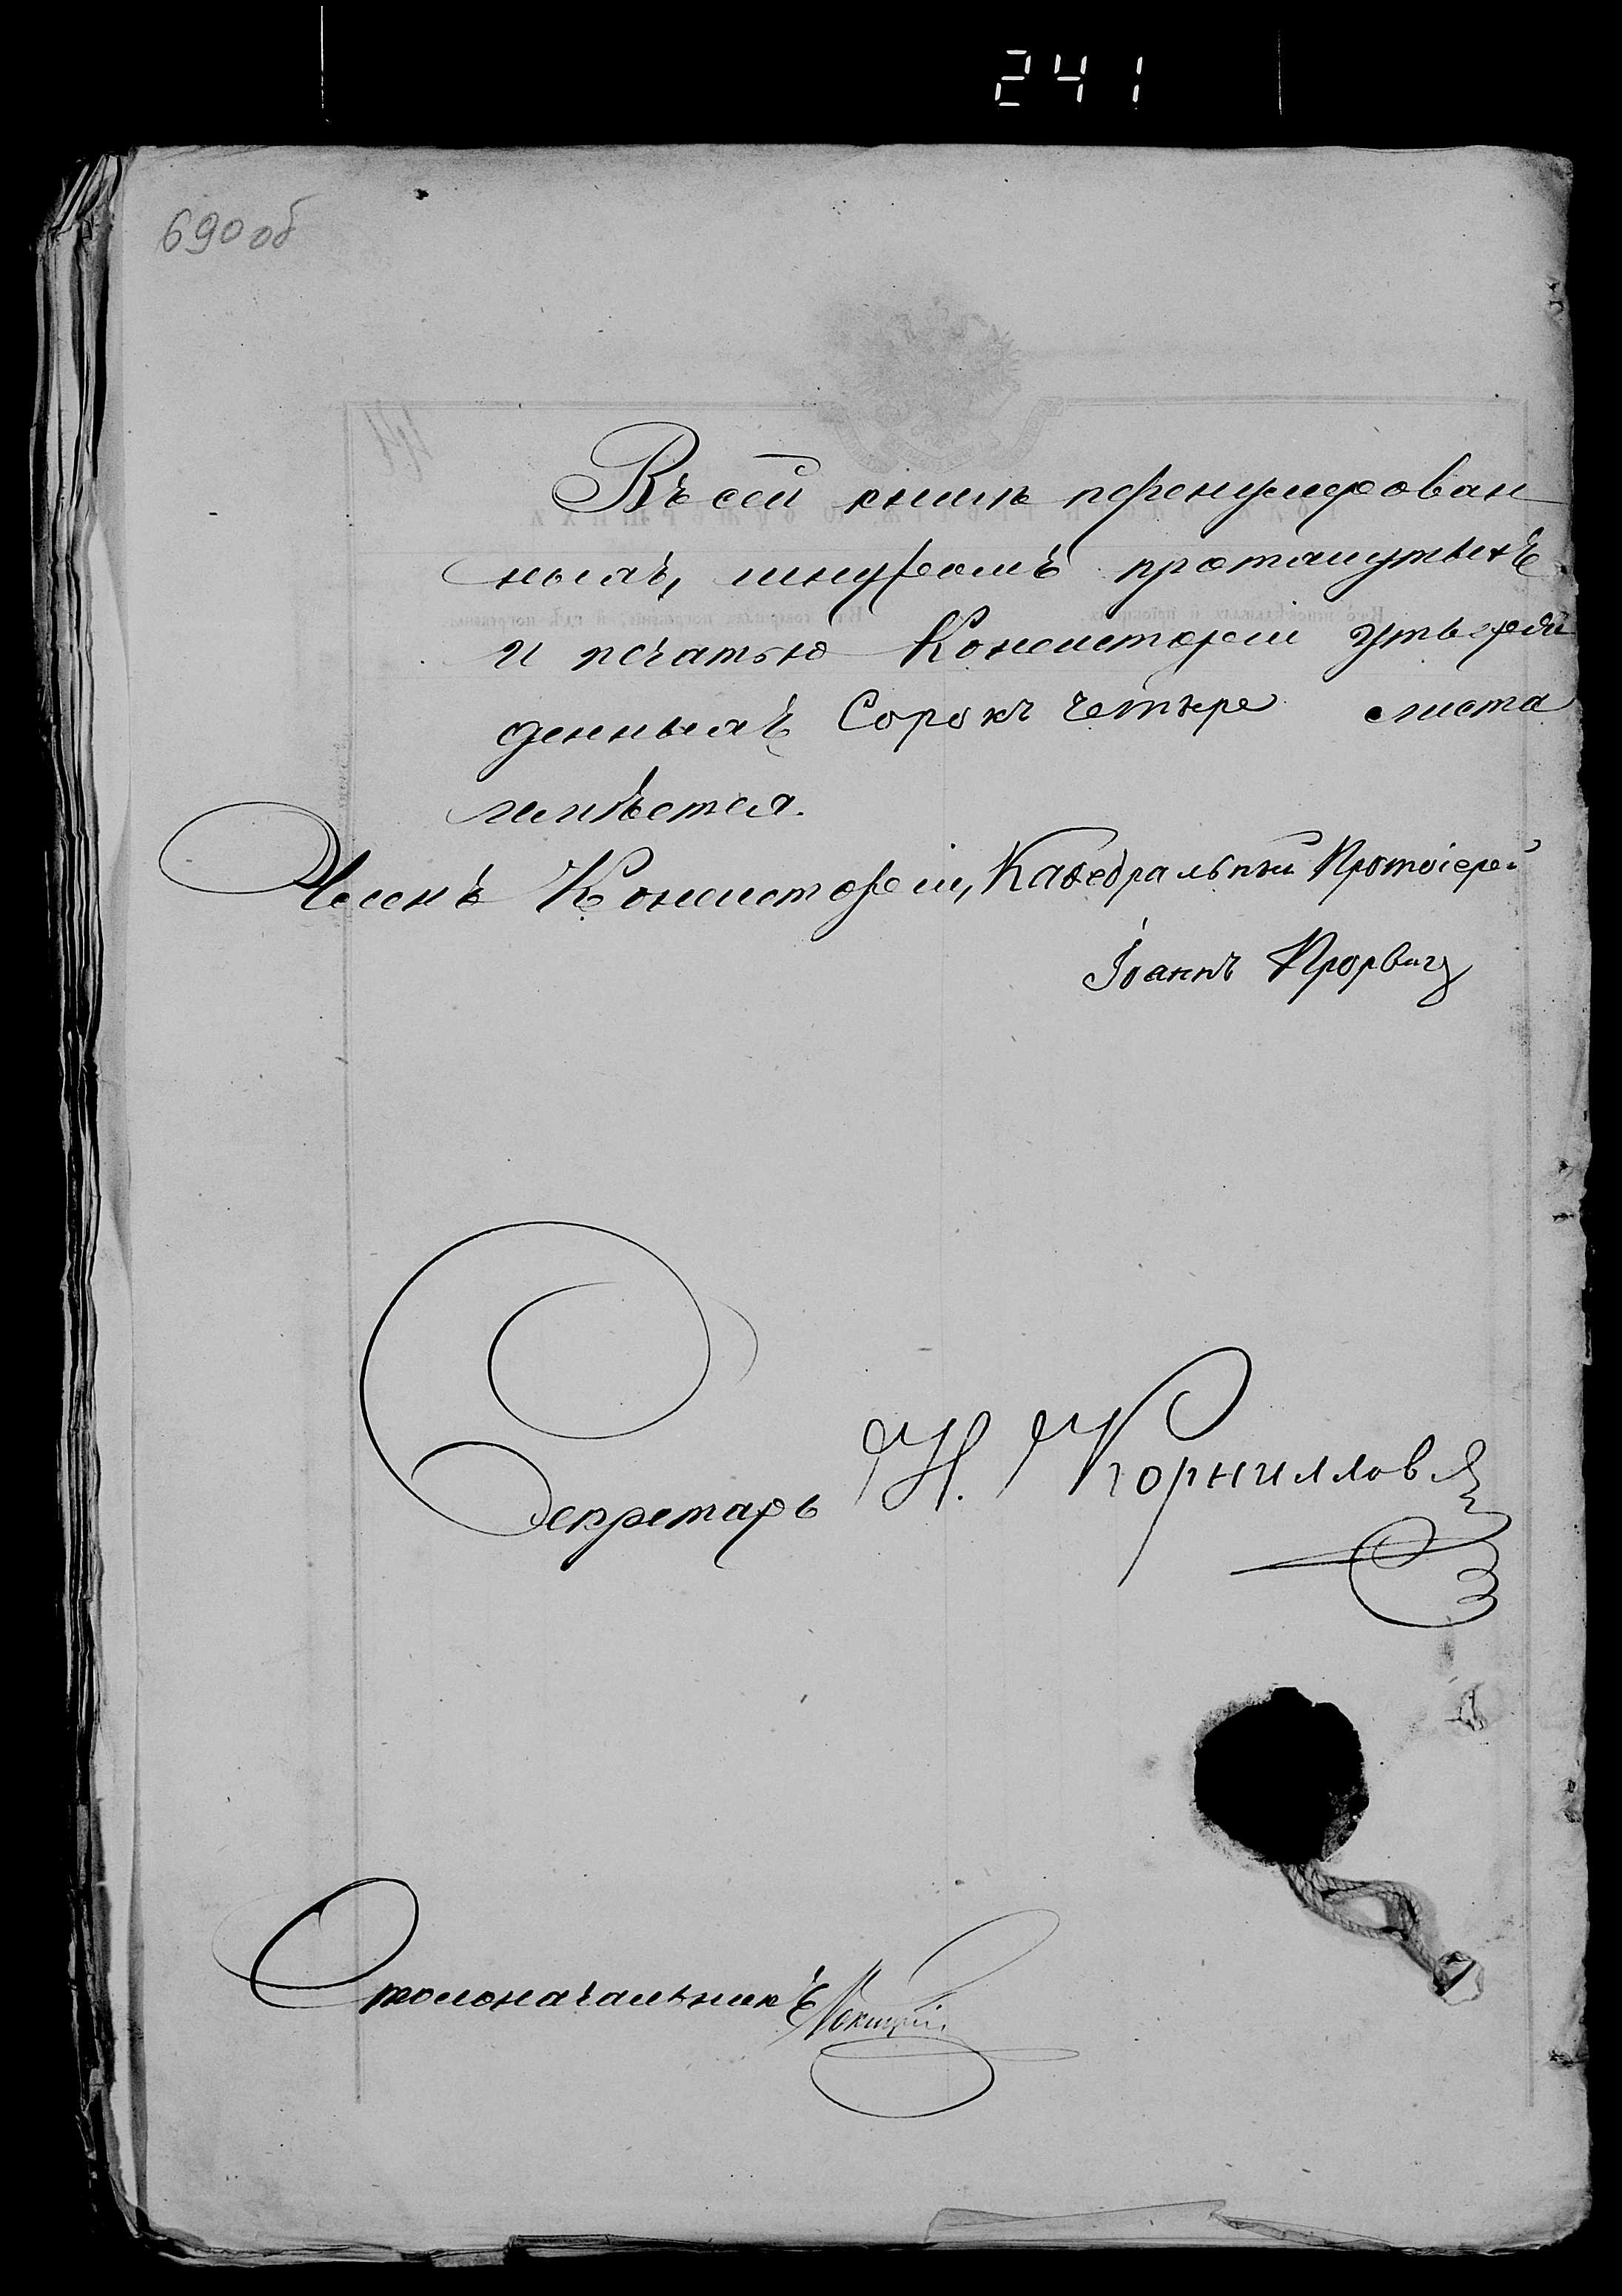 241
690 об
Въ сей книгѣ перенумерован
ныхъ, шнуромъ протянутыхъ
и печатью Консисторіи утверж
денныхъ Сорокъ четыре листа
имѣется.
Членъ Консисторіи, Каѳедральный Протоіерей
Іоаннъ Прорвичъ
Секретарь Н. Корнилловъ
Столоначальникъ